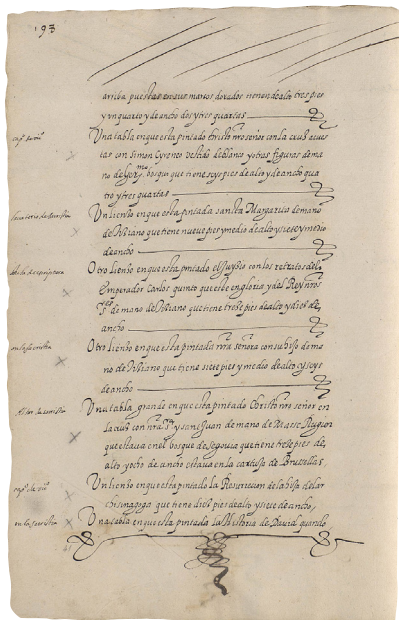 193
arriba puestas en sus marcos dorados tienen de alto tres pies
y un quarto y de ancho dos y tres quartas
Una tabla en que esta pintado Christo nro señor con la cruz acues
tas con Simon Cyreneo vestido de blanco y otras figuras de ma
no de Ger.mo bosqui que tiene seys pies de alto y de ancho qua
tro y tres quartas
Un lienço en que esta pintada sancta Margarita de mano
de Tiziano que tiene nueve pies y medio de alto y siete y medio
de ancho
Otro lienço en que esta pintado el Juyzio con los retratos del
Emperador Carlos quinto que esta en gloria y del Rey nro
s.or de mano de Tiziano que tiene treze pies de alto y diez de
ancho
Otro lienço en que esta pintada nra señora con su hijo de ma
no de Tiziano que tiene siete pies y medio de alto y seys
de ancho
Una tabla grande en que esta pintado Christo nro señor en
la cruz con nra s.ra y sant Juan de mano de Masse Rugier
que estava en el bosque de Segovia que tiene treze pies de
alto y ocho de ancho estava en la cartuja de Brussellas,
Un lienço en que esta pintado la Resurecion de la hija del ar
chisinagogo que tiene diez pies de alto y siete de ancho,
Una tabla en que esta pintada la historia de David quando
en la sacristia